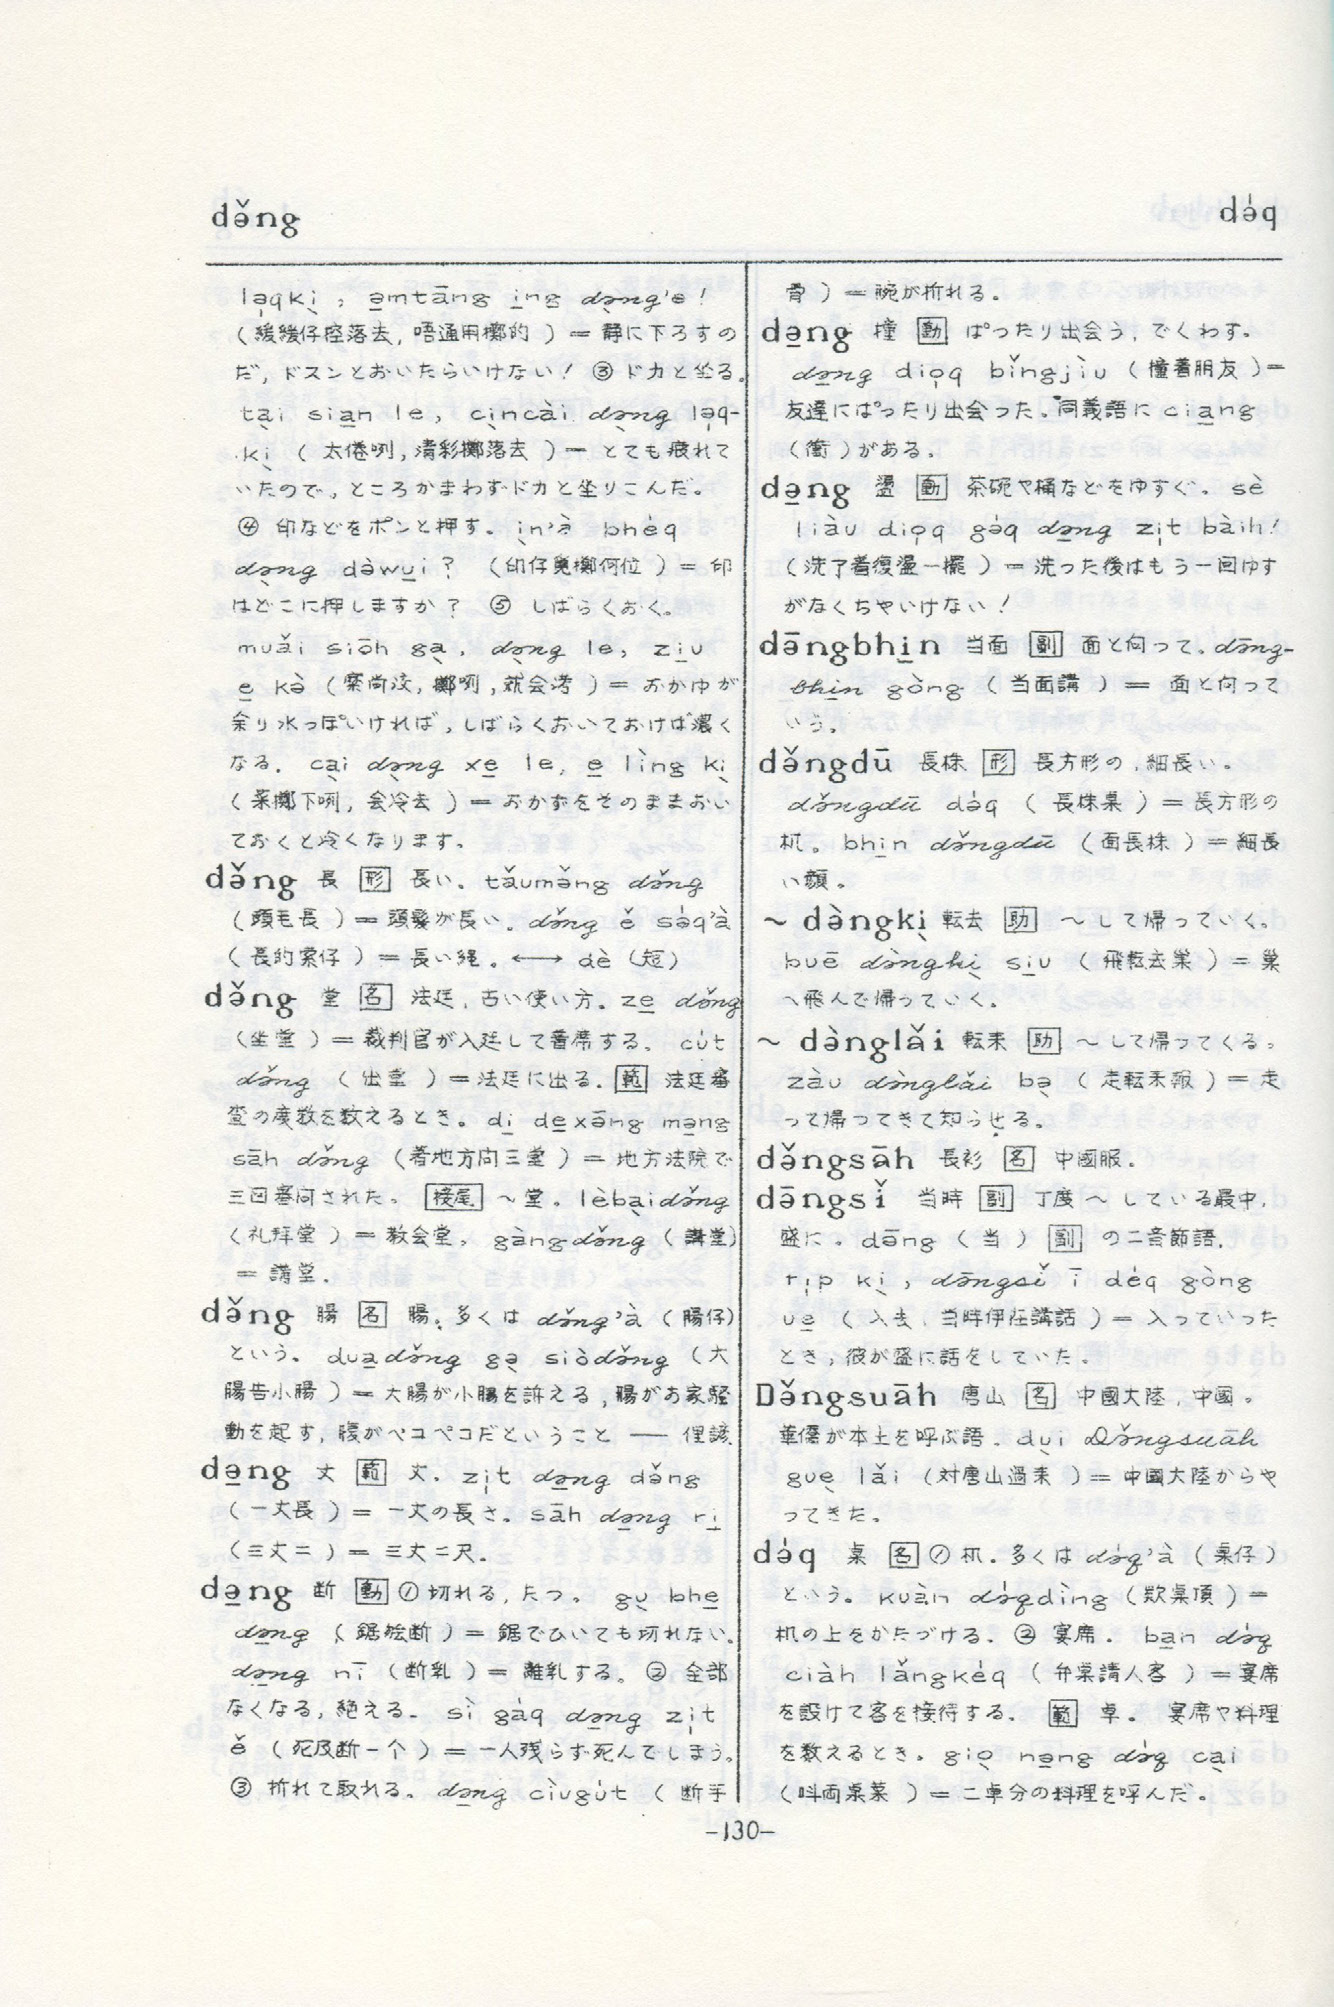 də̌ng
də̍q
lə̣qkị, ə̱mtāng i̱ng də̱ng'e!
(緩緩仔控落去, 唔通用擲的 ) = 静に下ろすの
だ, ドスンとおいたらいけない! ③ ドカと坐る。
tại sia̱n le, cịncài də̣ng lə̣q-
kị ( 太倦咧, 清彩擲落去 ) = とても疲れて
いたので, ところかまわずドカと坐りこんだ。
④ 印などをポンと押す。 ịn'à bhėq
də̣ng dàwu̱i? (印仔覓擲何位 ) = 印
はどこに押しますか? ⑤ しばらくおく。
muǎi siōh gạ, də̣ng le, zi̱u
e̱ kà (糜尚汶, 擲咧, 就会洘 ) = おかゆが
余り水っぽいければ, しばらくおいておけば濃く
なる. cại də̣ng xe̱ le, e̱ lìng kị
( 菜擲下咧, 会冷去 ) = おかずをそのままおい
ておくと冷くなります。
də̌ng 長 形 長い. tǎumə̌ng də̌ng
(頭毛長 ) = 頭髪が長い. də̌ng ě sə́q'à
(長的索仔 ) = 長い縄。 ←→ dè (短)
də̌ng 堂 名 法廷, 古い使い方. ze̱ də̌ng
(坐堂 ) = 裁判官が入廷して着席する. cu̍t
də̌ng ( 出堂 ) = 法廷に出る. 範 法廷審
査の度数を数えるとき。 di̱ de̱xāng mə̱ng
sāh də̌ng (着地方問三堂 ) = 地方法院で
三回審問された。 接尾 ~堂. lèbạidə̌ng
(礼拝堂 ) = 教会堂. gàngdə̌ng ( 講堂)
= 講堂.
də̌ng 腸 名 腸. 多くは də̌ng'à ( 腸仔)
という. dua̱də̌ng gạ siòdə̌ng (大
腸告小腸 ) = 大腸が小腸を訴える, 腸がお家騒
動を起す, 腹がペコペコだということ ── 俚諺.
də̱ng 丈 範 丈. zị̍t də̱ng də̌ng
(一丈長 ) = 一丈の長さ. sāh də̱ng ri̱
(三丈二 ) = 三丈二尺.
də̱ng 断 動 ① 切れる, たつ。 gụ bhe̱
də̱ng ( 鋸絵断 ) = 鋸でひいても切れない.
də̱ng nī (断乳 ) = 離乳する。 ② 全部
なくなる, 絶える. sì gȧq də̱ng zị̍t
ě ( 死及断一个 ) = 一人残らず死んでしまう。
③ 折れて取れる. də̱ng cìugu̍t ( 断手
骨 ) = 腕が折れる。
də̱ng 撞 動 ぱったり出会う, でくわす.
də̱ng diọq bǐngjìu (撞着朋友 ) =
友達にぱったり出会った. 同義語に cia̱ng
(衝 )がある.
də̱ng 盪 動 茶碗や桶などをゆすぐ. sè
liàu diọq gə̍q də̱ng zị̍t bàih!
(洗了着復盪一擺 ) = 洗った後はもう一回ゆす
がなくちやいけない!
dāngbhi̱n 当面 副 面と向って. dāng-
bhi̱n gòng ( 当面講 ) = 面と向って
いう.
də̌ngdū 長株 形 長方形の, 細長い。
də̌ngdū də̍q ( 長株桌 ) = 長方形の
机. bhi̱n də̌ngdū (面長株 ) = 細長
い顔.
~ də̀ngkị 転去 助 ~して帰っていく。
buē də̀ngkị si̱u ( 飛転去巣 ) = 巣
へ飛んで帰っていく.
~ də̀nglǎi 転来 助 ~して帰ってくる。
zàu də̀nglǎi bə̣ ( 走転来報 ) = 走
って帰ってきて知らせる.
də̌ngsāh 長衫 名 中國服.
dāngsǐ 当時 副 丁度~している最中,
盛に. dāng ( 当 ) 副 の二音節語.
rịp kị, dāngsǐ ī déq gòng
ue̱ ( 入去, 当時伊在講話 ) = 入っていった
とき, 彼が盛に話をしていた.
Də̌ngsuāh 唐山 名 中國大陸, 中國.
華僑が本土を呼ぶ語. dụi Də̌ngsuāh
guẹ lǎi (対唐山過来 ) = 中國大陸からや
ってきた.
də̍q 桌 名 ① 机. 多くは də̍q'à ( 桌仔 )
という. kuàn də̍qdìng (款桌頂 ) =
机の上をかたづける. ② 宴席. ba̱n də̍q
ciàh lǎngkėq ( 弁桌請人客 ) = 宴席
を設けて客を接待する. 範 卓. 宴席や料理
を数えるとき. giọ nə̱ng də̍q cại
(叫両桌菜 ) = 二卓分の料理を呼んだ.
-130-